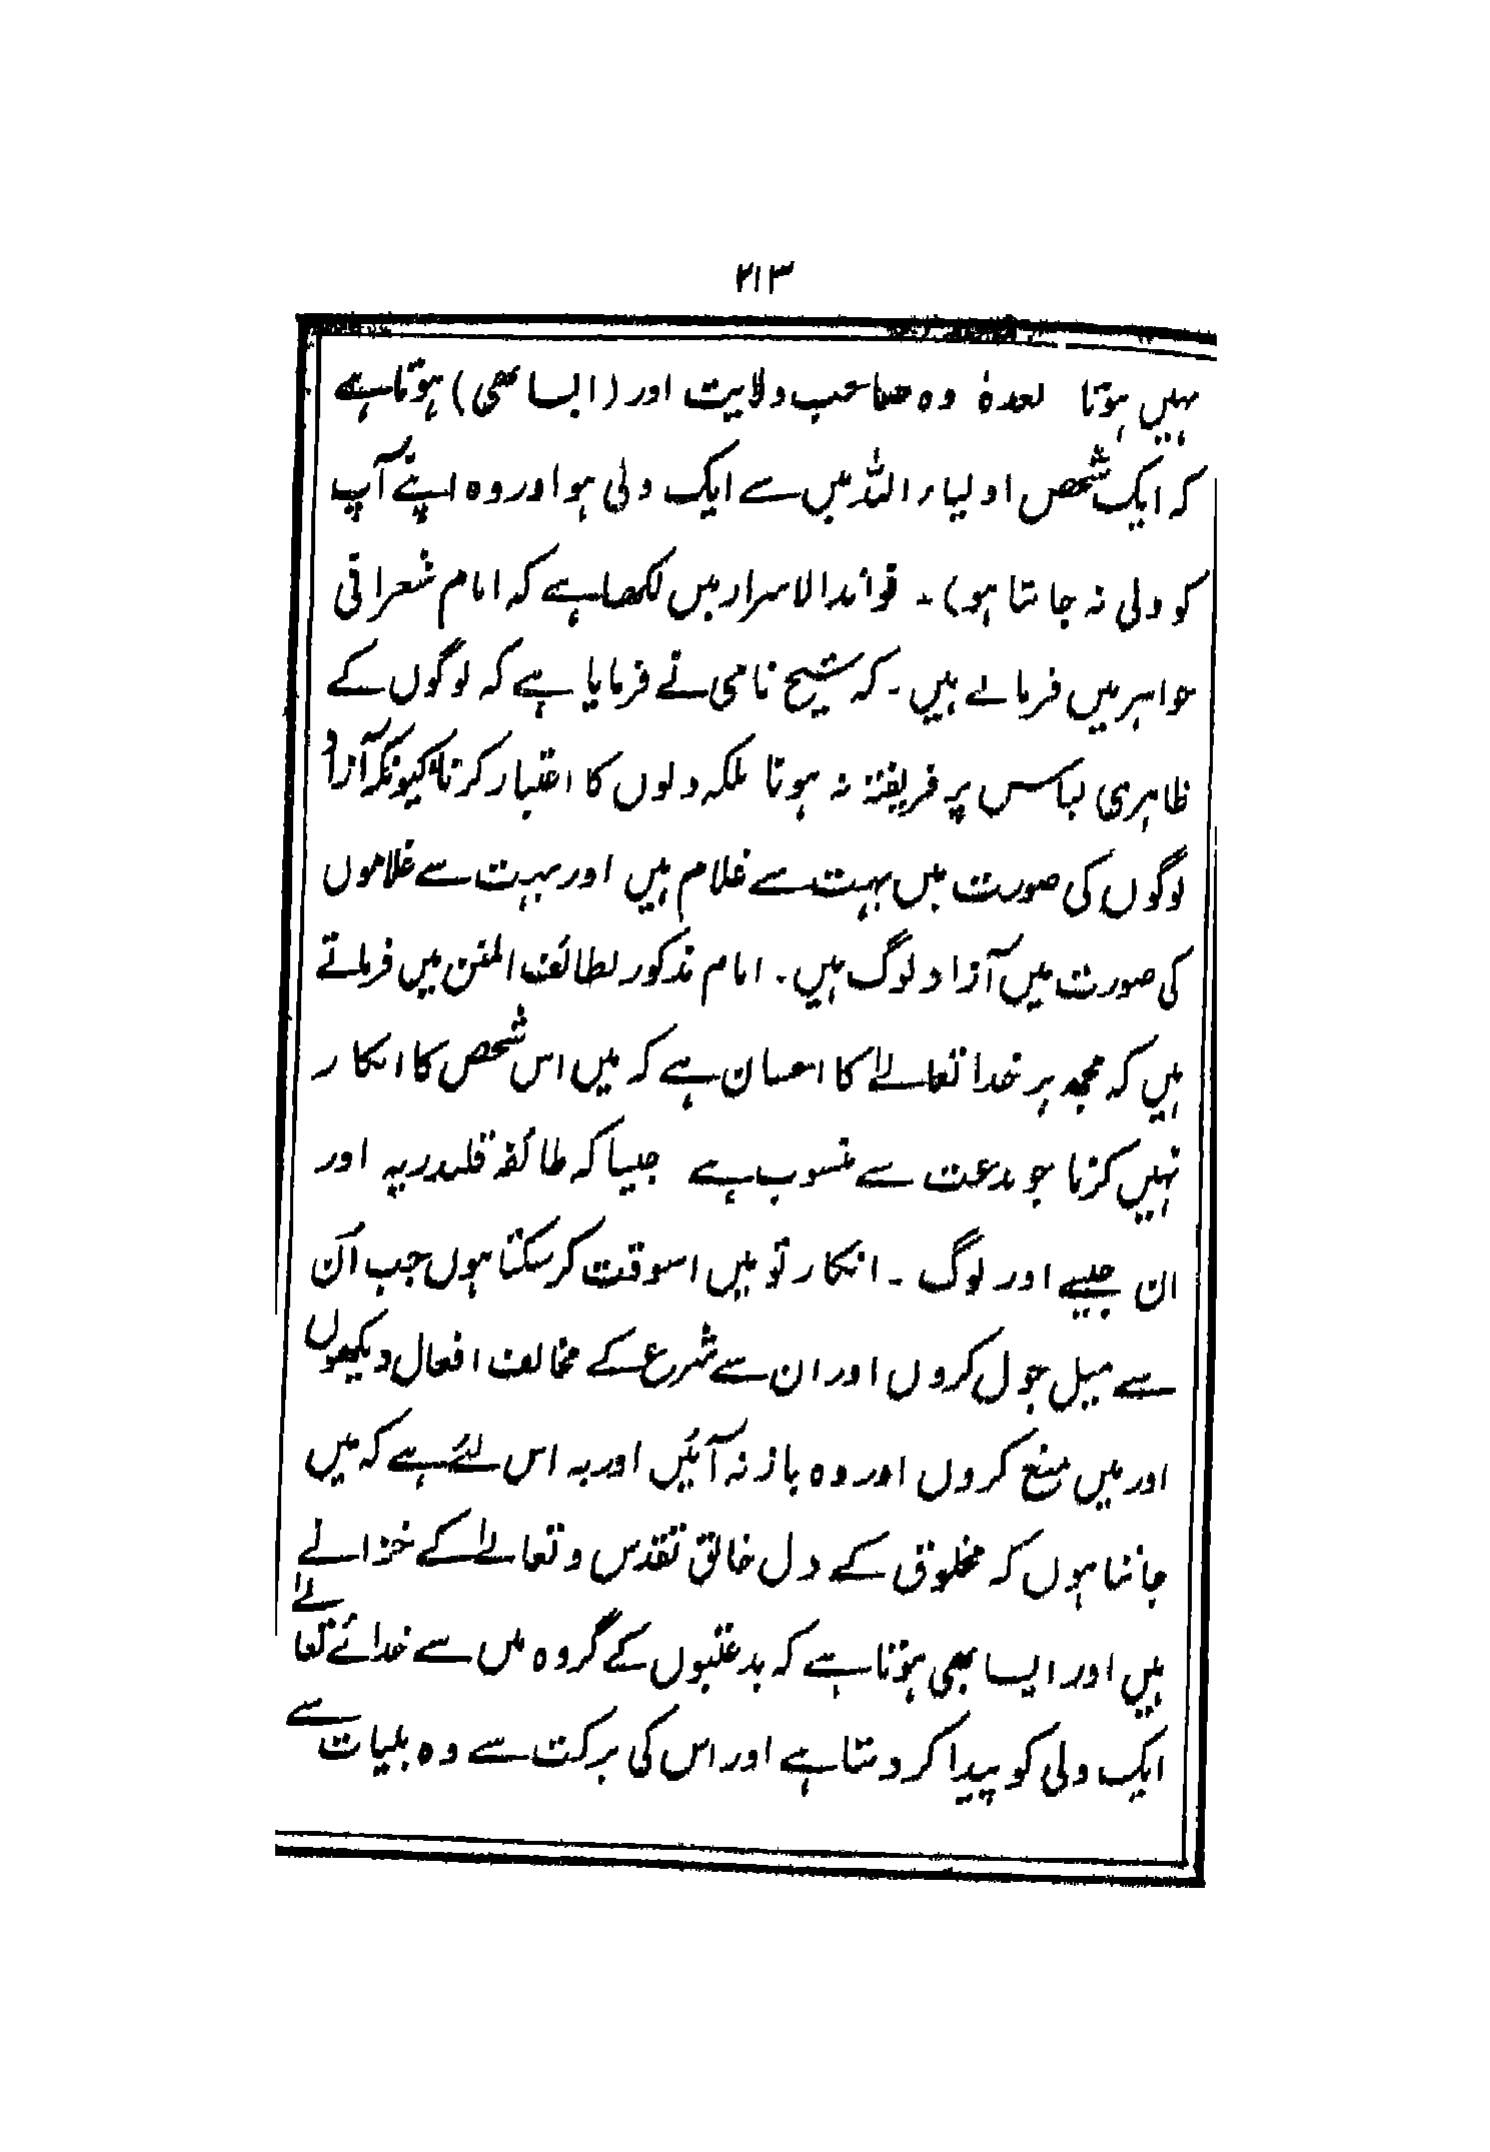 ۲۱۳
نہیں ہوتا بعدہٗ وہ صاحب ولایت اور (ایسا بھی) ہوتا ہے
کہ ایک شخص اولیاء اللہ میں سے ایک ولی ہو اور وہ اپنے آپ
کو ولی نہ جانتا ہو)۔ فوائد الاسرار میں لکھا ہے کہ امام شعرانی
جواہر میں فرماتے ہیں۔ کہ شیخ نامی نے فرمایا ہے کہ لوگوں کے
ظاہری لباس پر فریفتہ نہ ہونا بلکہ دلوں کا اعتبار کرنا کیونکہ آزاد
لوگوں کی صورت میں بہت سے غلام ہیں اور بہت سے غلاموں
کی صورت میں آزاد لوگ ہیں۔ امام مذکور لطائف المنن میں فرماتے
ہیں کہ مجھ پر خدا تعالےٰ کا احسان ہے کہ میں اس شخص کا انکار
نہیں کرتا جو بدعت سے منسوب ہے جیسا کہ طائفہ قلندریہ اور
ان جیسے اور لوگ ۔ انکار تو میں اسوقت کر سکتا ہوں جب اُن
سے میل جول کروں اور ان سے شرع کے مخالف افعال دیکھوں
اور میں منع کروں اور وہ باز نہ آئیں اور یہ اس لئے ہے کہ میں
جانتا ہوں کہ مخلوق کے دل خالق تقدس و تعالےٰ کے خزانے
ہیں اور ایسا بھی ہوتا ہے کہ بدعتیوں کے گروہ میں سے خدائے تعالےٰ
ایک ولی کو پیدا کر دیتا ہے اور اس کی برکت سے وہ بلیات سے